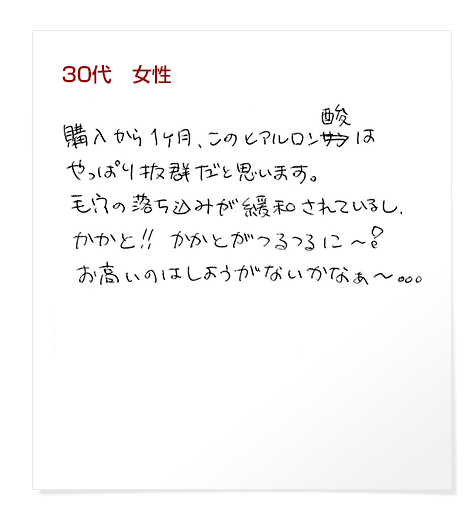 30代 女性
購入から1ヶ月、このヒアルロン酸は
やっぱり抜群だと思います。
毛穴の落ち込みが緩和されているし、
かかと!! かかとがつるつるに〜?
お高いのはしょうがないかなぁ〜...